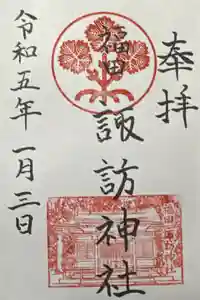 奉拝
福田
諏訪神社
令和五年 一月三日